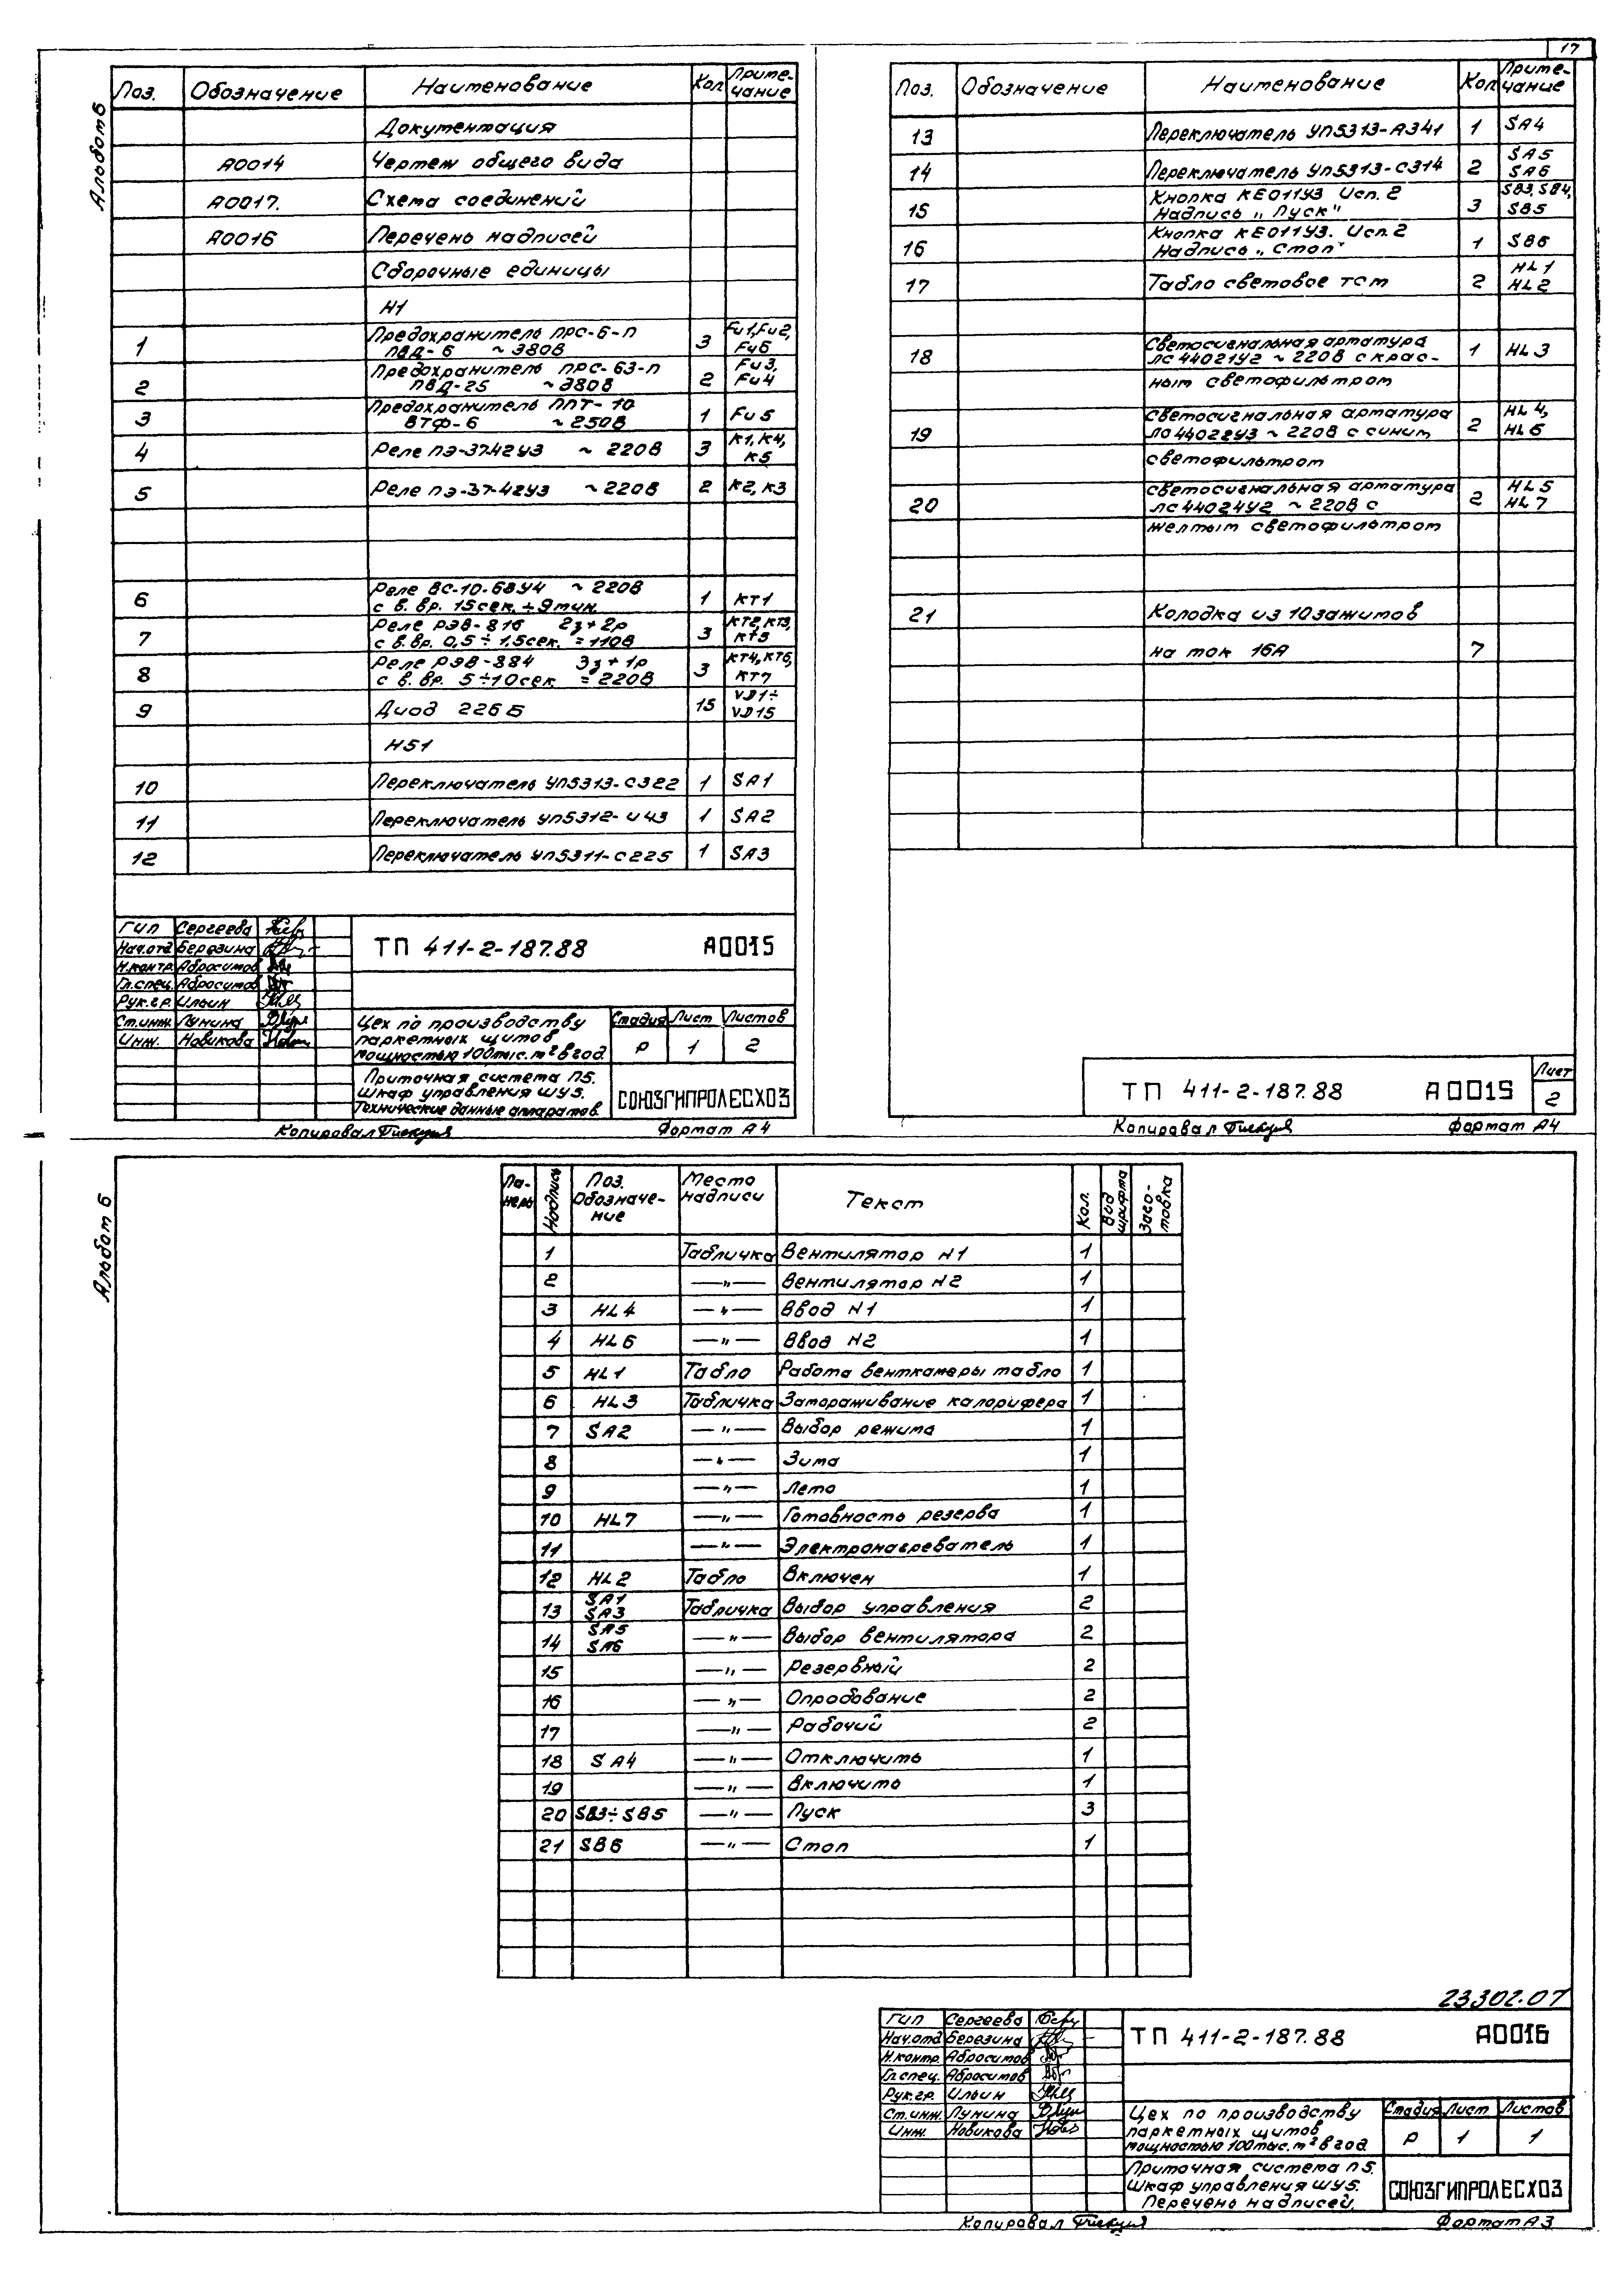 17
Альбом 6
Поз. Обозначение Наименование Кол Приме-
чание
Документация
А0014 Чертеж общего вида
А0017. Схема соединений
А0016 Перечень надписей
Сборочные единицы
Н1
Предохранитель ПРС-6-П Fu1, Fu2,
1 ПВД-6 ~ 380В 3 Fu6
Предохранитель ПРС-63-П Fu3,
2 ПВД-25 ~380В 2 Fu4
Предохранитель ППТ-10
3 ВТФ-6 ~250В 1 Fu5
4 Реле ПЭ-37-42У3 ~ 220В 3 К1, К4,
К5
5 Реле ПЭ-37-42У3 ~220В 2 К2, К3
Реле ВС-10-68У4 ~ 220В
6 с в. вр. 15сек. ÷ 9мин. 1 КТ1
Реле РЭВ-816 2з+2р КТ2, КТ3,
7 с в.вр. 0,5 ÷ 1,5сек. = 110В 3 КТ5
Реле РЭВ-884 3з+1р КТ4, КТ6,
8 с в. вр. 5÷10сек = 220В 3 КТ7
9 Диод 226Б 15 VД1÷
VД15
Н51
10 Переключатель УП5313-С322 1 SA1
11 Переключатель УП5312-И43 1 SA2
12 Переключатель УП5311-С225 1 SA3
ГИП Сергеева
Нач.отд Березина
Н.контр. Абросимов
Гл.спец. Абросимов
Рук.гр. Ильин
Ст.инж. Лунина
Инж. Новикова
ТП 411-2-187.88 А0015
Цех по производству
паркетных щитов
мощностью 100тыс. м² в год
Стадия Лист Листов
Р 1 2
Приточная система П5.
Шкаф управления ШУ5.
Технические данные аппаратов.
СОЮЗГИПРОЛЕСХОЗ
Копировал Формат А4
Поз. Обозначение Наименование Кол Приме-
чание
13 Переключатель УП5313-А341 1 SA4
14 Переключатель УП5313-С314 2 SA5
SA6
Кнопка КЕ011У3 Исп. 2 SB3, SB4,
15 Надпись „Пуск" 3 SB5
Кнопка КЕ011У3. Исп.2
16 Надпись „Стоп" 1 SB6
17 Табло световое тсм 2 HL1
HL2
Светосигнальная арматура
18 ЛС44021У2 ~ 220В с крас- 1 HL3
ным светофильтром
Светосигнальная арматура HL4,
19 ЛС44022У3 ~ 220В с синим 2 HL6
светофильтром
Светосигнальная арматура HL5
20 ЛС44024У2 ~ 220В с 2 HL7
желтым светофильтром
21 Колодка из 10зажимов
на ток 16А 7
ТП 411-2-187.88 А0015
Лист
2
Копировал Формат А4
Альбом 6
Па-
нель Надпись Поз.
Обозначе-
ние Место
надписи Текст Кол. Вид
шрифта Заго-
товка
1 Табличка Вентилятор Н1 1
2 —„— Вентилятор Н2 1
3 HL4 —„— Ввод Н1 1
4 HL6 —„— Ввод Н2 1
5 HL1 Табло Работа венткамеры табло 1
6 HL3 Табличка Замораживание калорифера 1
7 SA2 —„— Выбор режима 1
8 —„— Зима 1
9 —„— Лето 1
10 HL7 —„— Готовность резерва 1
11 —„— Электронагреватель 1
12 HL2 Табло Включен 1
13 SA1
SA3 Табличка Выбор управления 2
14 SA5
SA6 —„— Выбор вентилятора 2
15 —„— Резервный 2
16 —„— Опробование 2
17 —„— Рабочий 2
18 SA4 —„— Отключить 1
19 —„— Включить 1
20 SB3÷SB5 —„— Пуск 3
21 SB6 —„— Стоп 1
23302-07
ГИП Сергеева
Нач.отд Березина
Н.контр. Абросимов
Гл.спец. Абросимов
Рук.гр. Ильин
Ст.инж. Лунина
Инж. Новикова
ТП 411-2-187.88 А0016
Цех по производству
паркетных щитов
мощностью 100тыс. м² в год.
Стадия Лист Листов
Р 1 1
Приточная система П5.
Шкаф управления ШУ5.
Перечень надписей.
СОЮЗГИПРОЛЕСХОЗ
Копировал Формат А3